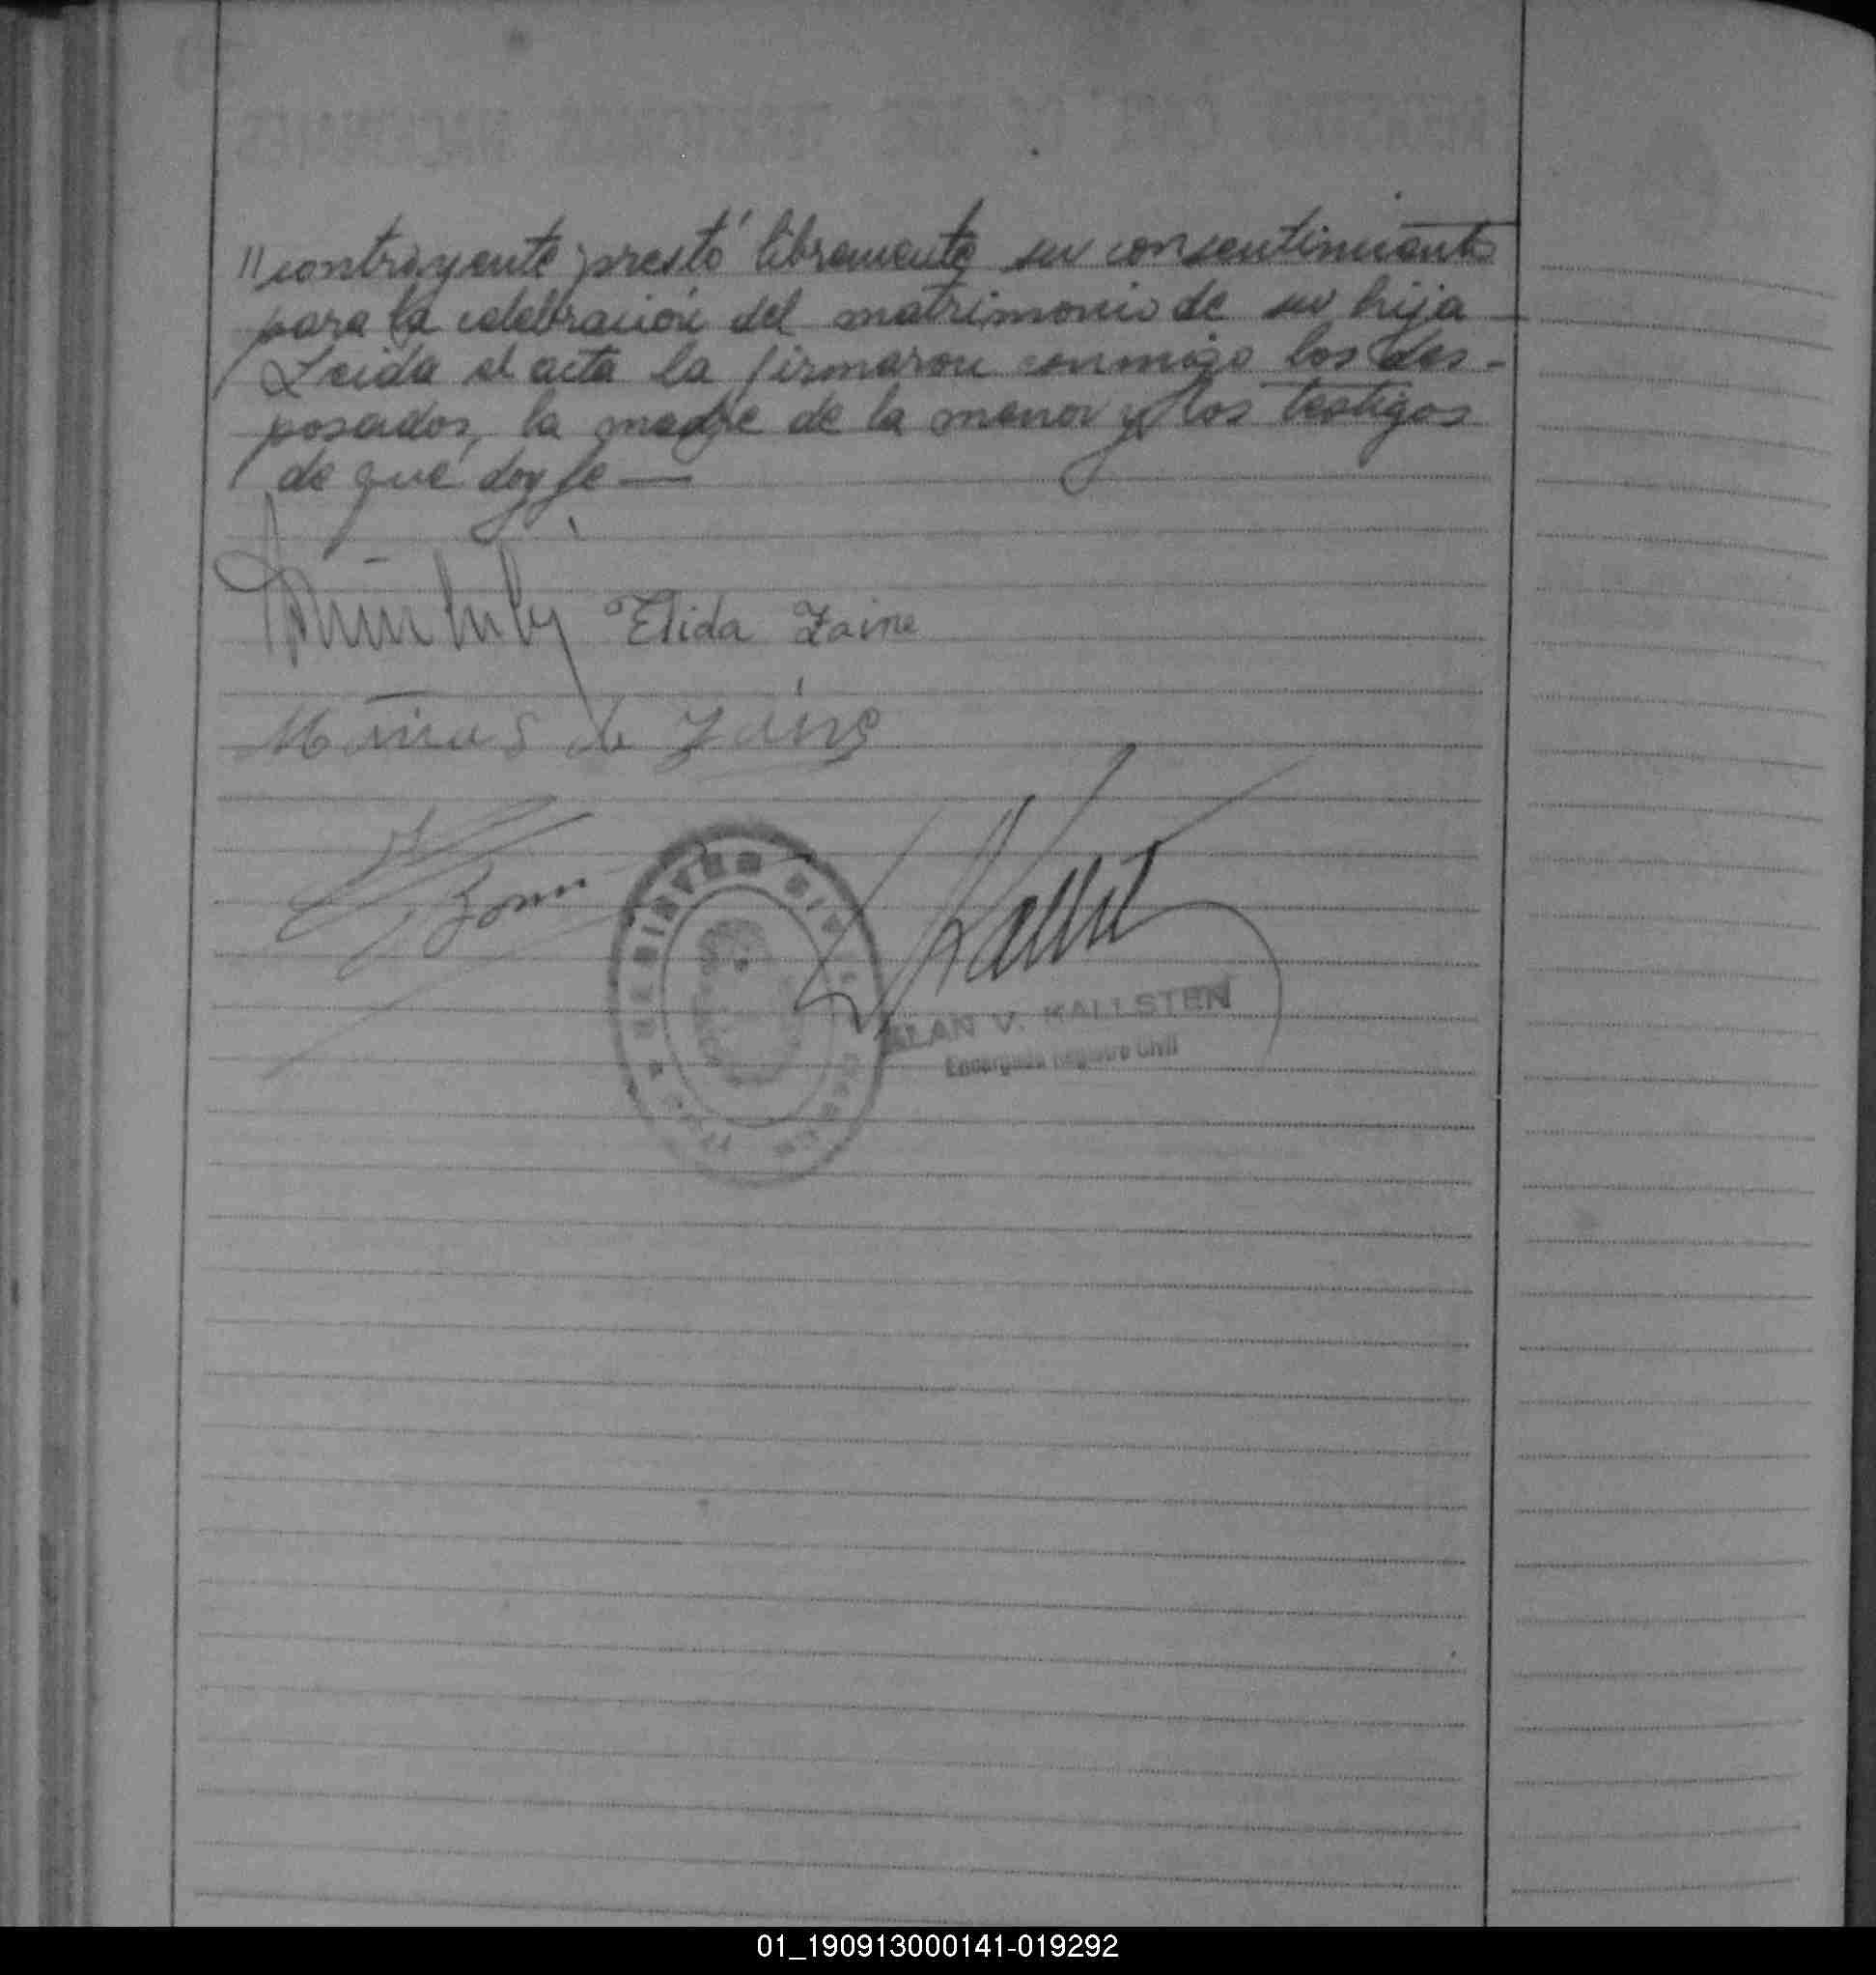 "contrayente prestó libremente su consentimiento
para la celebración del matrimonio de su hija
Leida el acta la firmaron conmigo los des-
posados, la madre de la menor y los testigos
de que doy fe —
Elida Zaine
de Zaine
ALAN V. KALLSTEN
Encargado Registro Civil
01_190913000141-019292